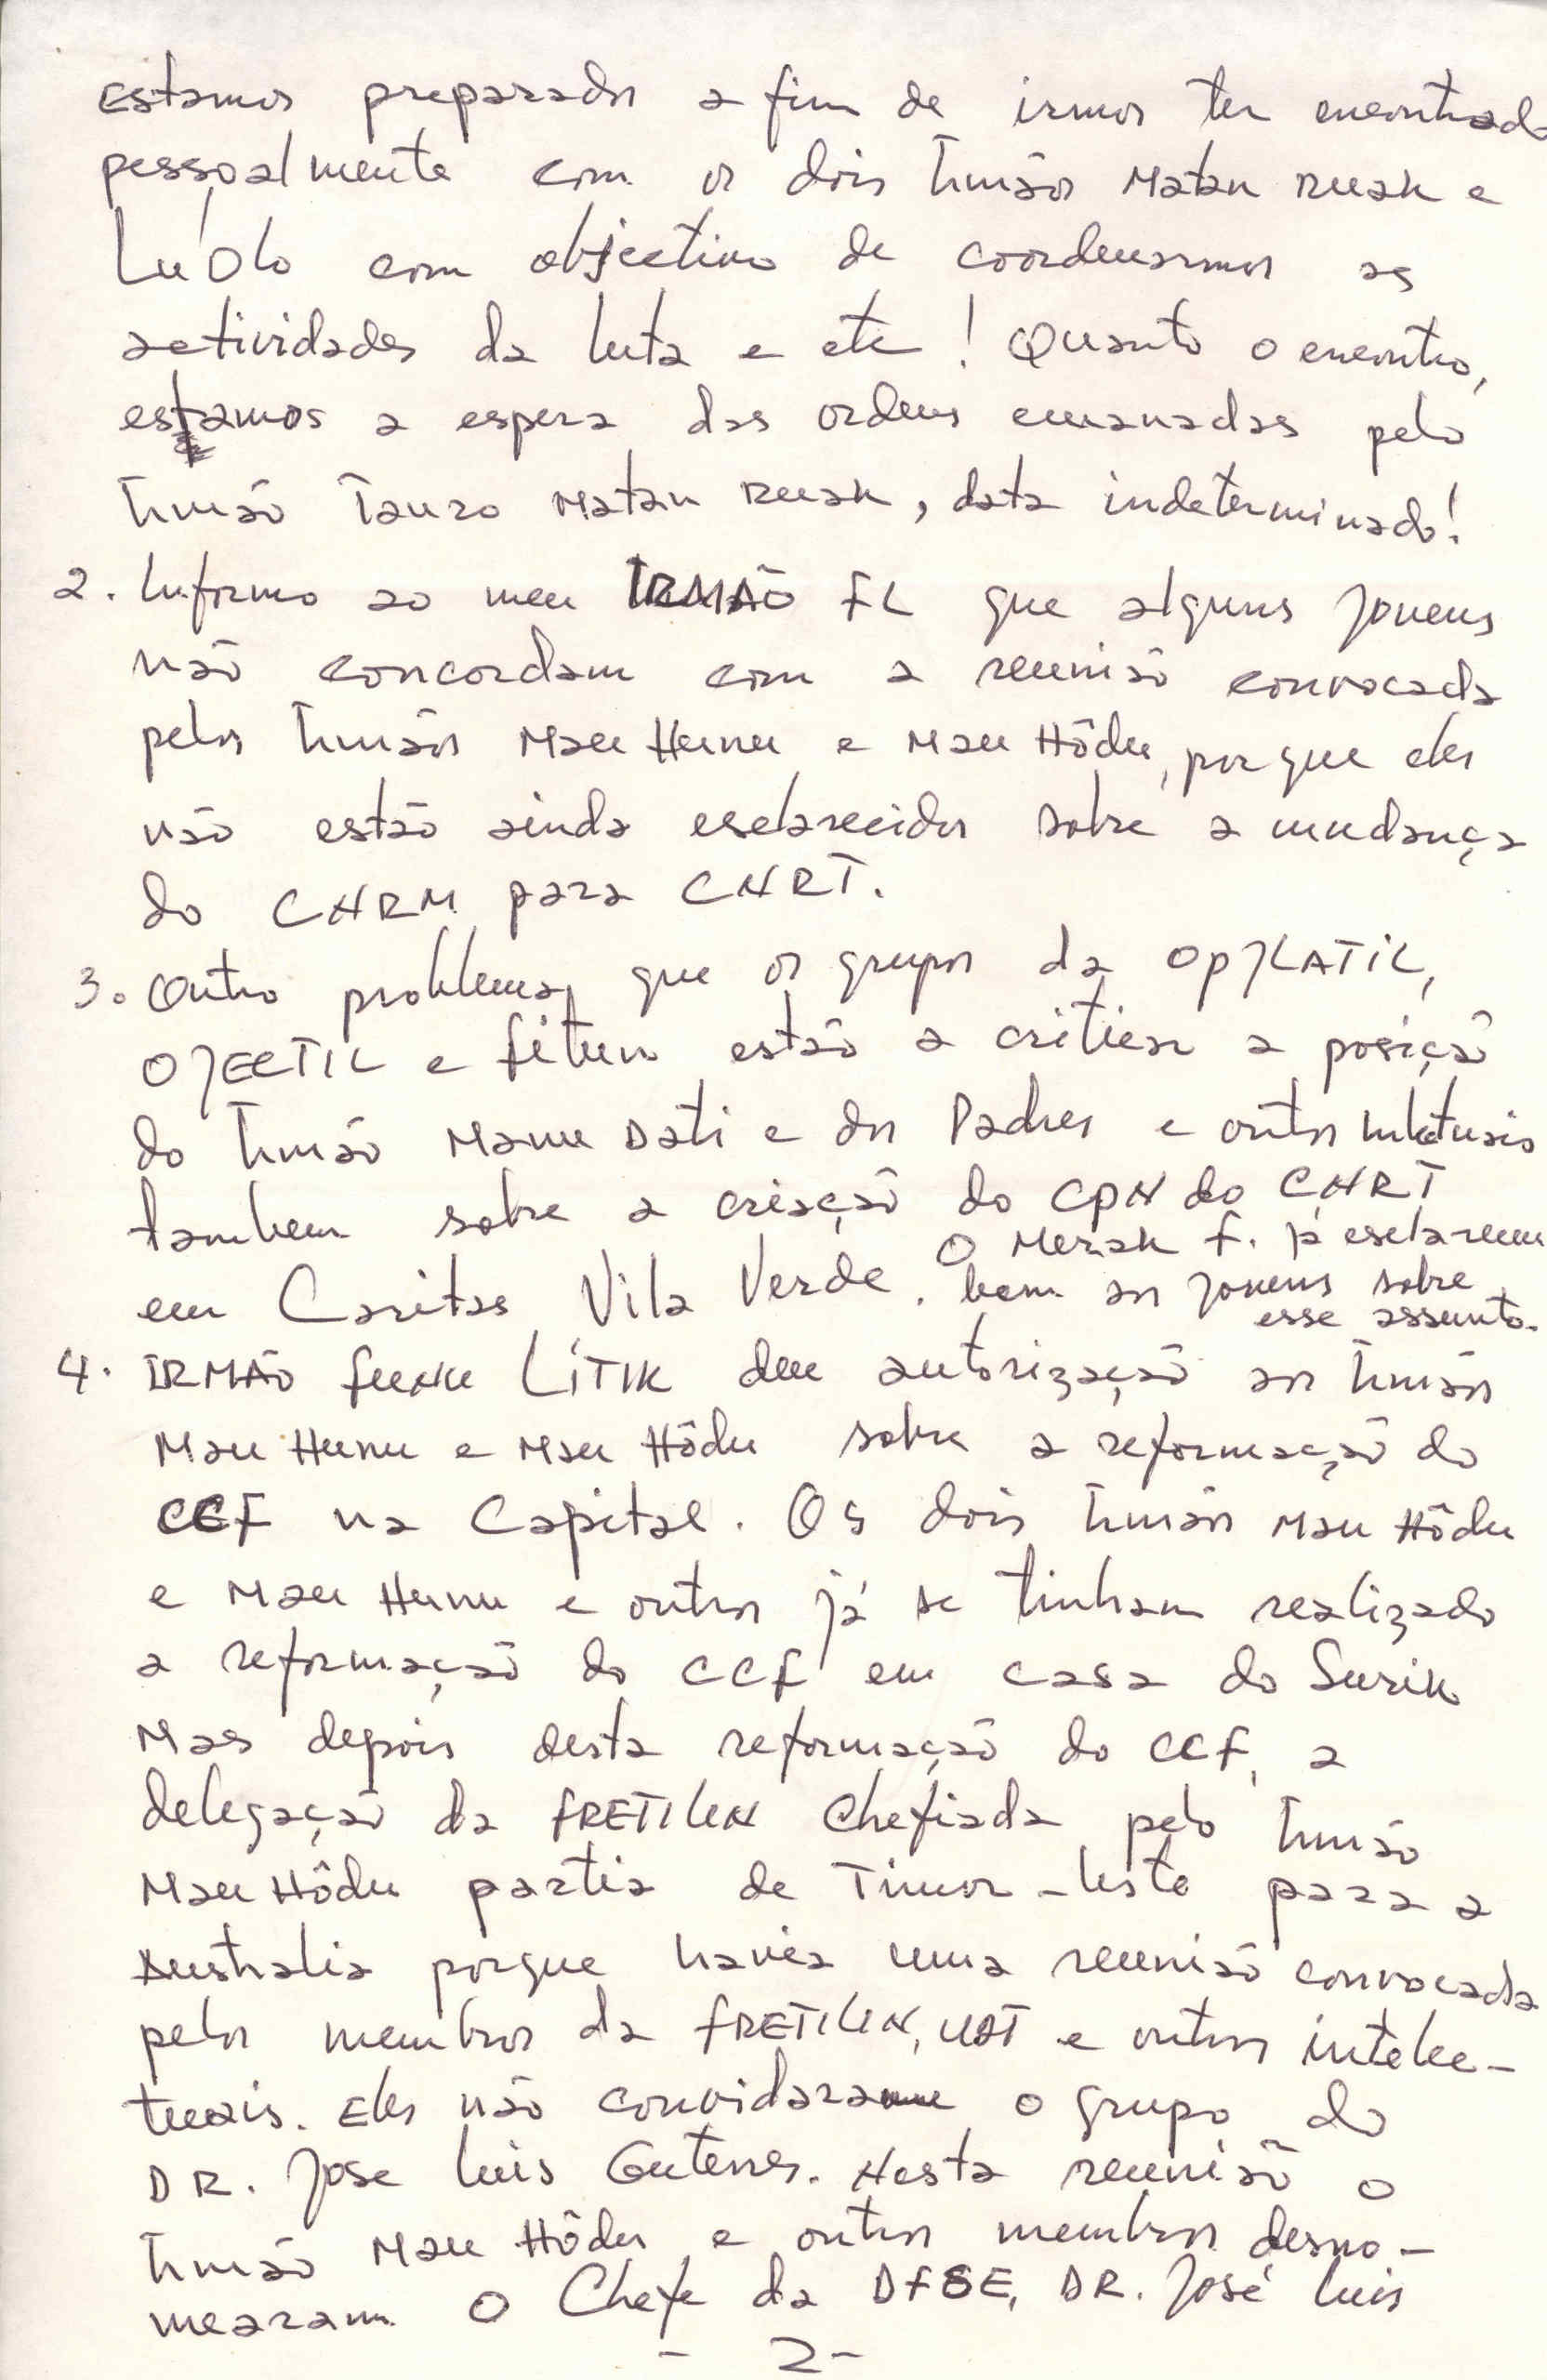 Estamos preparados a fim de irmos ter encontrado
pessoalmente com os dois Irmãos Matan Ruak e
Lu'Olo com objectivo de coordenarmos as
actividades da luta e etc! Quanto o encontro,
estamos a espera das ordens emanadas pelo
Irmão Tauro Matan Ruak, data indeterminado!
2. Informo ao meu IRMÃO FL que alguns jovens
não concordam com a reunião convocada
pelos Irmãos Mau Hunu e Mau Hôdu, porque eles
não estão ainda esclarecidos sobre a mudança
do CNRM para CNRT.
3. Outro problema, que os grupos da OPJLATIL,
OJECTIL e Fitun estão a criticar a posição
do Irmão Manu Dati e dos Padres e outros
tambem sobre a criação do CPN do CNRT
em Caritas Vila Verde. O Merak F. já esclareceu
bem aos jovens sobre
esse assunto.
4. IRMÃO Funu LíTIK deu autorização aos Irmãos
Mau Hunu e Mau Hôdu sobre a reformação do
CCF na Capital. Os dois Irmãos Mau Hôdu
e Mau Hunu e outros já se tinham realizado
a reformação do CCF em casa do Surik
Mas depois desta reformação do CCF, a
delegação da FRETILIN Chefiada pelo Irmão
Mau Hôdu partia de Timor-Leste para a
Australia porque havia uma reunião convocada
pelos membros da FRETILIN, UDT e outros intelec-
tuais. Eles não convidaram o grupo do
DR. Jose Luis Guterres. Nesta reunião o
Irmão Mau Hôdu e outros membros desno-
mearam O Chefe da DFSE, DR. José Luis
- 2 -